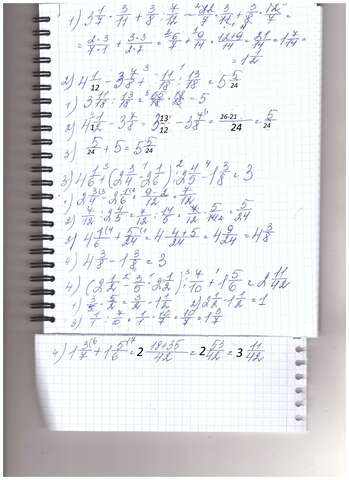 1) 3 1/7 · 3/11 + 3/8 : 7/12 = 22/7 · 3/11 + 3/8 · 12/7 =
= 2·3/7·1 + 3·3/2·7 = 6/7 + 9/14 = 12+9/14 = 21/14 = 1 7/14 =
= 1 1/2
2) 4 1/12 - 3 7/8 + 3 11/18 : 13/18 = 5 5/24
1) 3 11/18 : 13/18 = 65/18 · 18/13 = 5
2) 4 1/12 - 3 7/8 = 3 13/12 - 3 7/8 = 26-21/24 = 5/24
3) 5/24 + 5 = 5 5/24
3) 4 1/6 + (2 3/4 - 2 1/6) : 2 4/5 - 1 3/8 = 3
1) 2 3/4 - 2 1/6 = 9-2/12 = 7/12
2) 7/12 : 2 4/5 = 7/12 : 14/5 = 7/12 · 5/14 = 5/24
3) 4 1/6 + 5/24 = 4 4+5/24 = 4 9/24 = 4 3/8
4) 4 3/8 - 1 3/8 = 3
4) (2 1/2 - 3/5 · 2 1/2) : 7/10 + 1 5/6 = 2 11/42
1) 3/5 · 5/2 = 3/2 = 1 1/2 2) 2 1/2 - 1 1/2 = 1
3) 1/1 : 7/10 = 1/1 · 10/7 = 10/7 = 1 3/7
4) 1 3/7 + 1 5/6 = 2 18+35/42 = 2 53/42 = 3 11/42